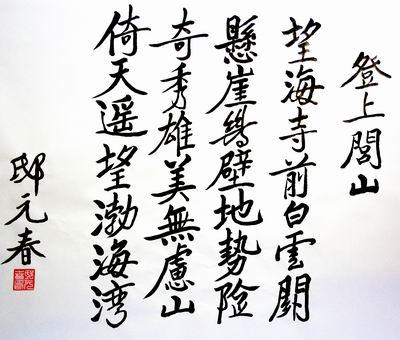 登上閭山
望海寺前白雲開
懸崖絶壁地勢险
奇秀雄美無慮山
倚天遥望渤海湾
邸元春